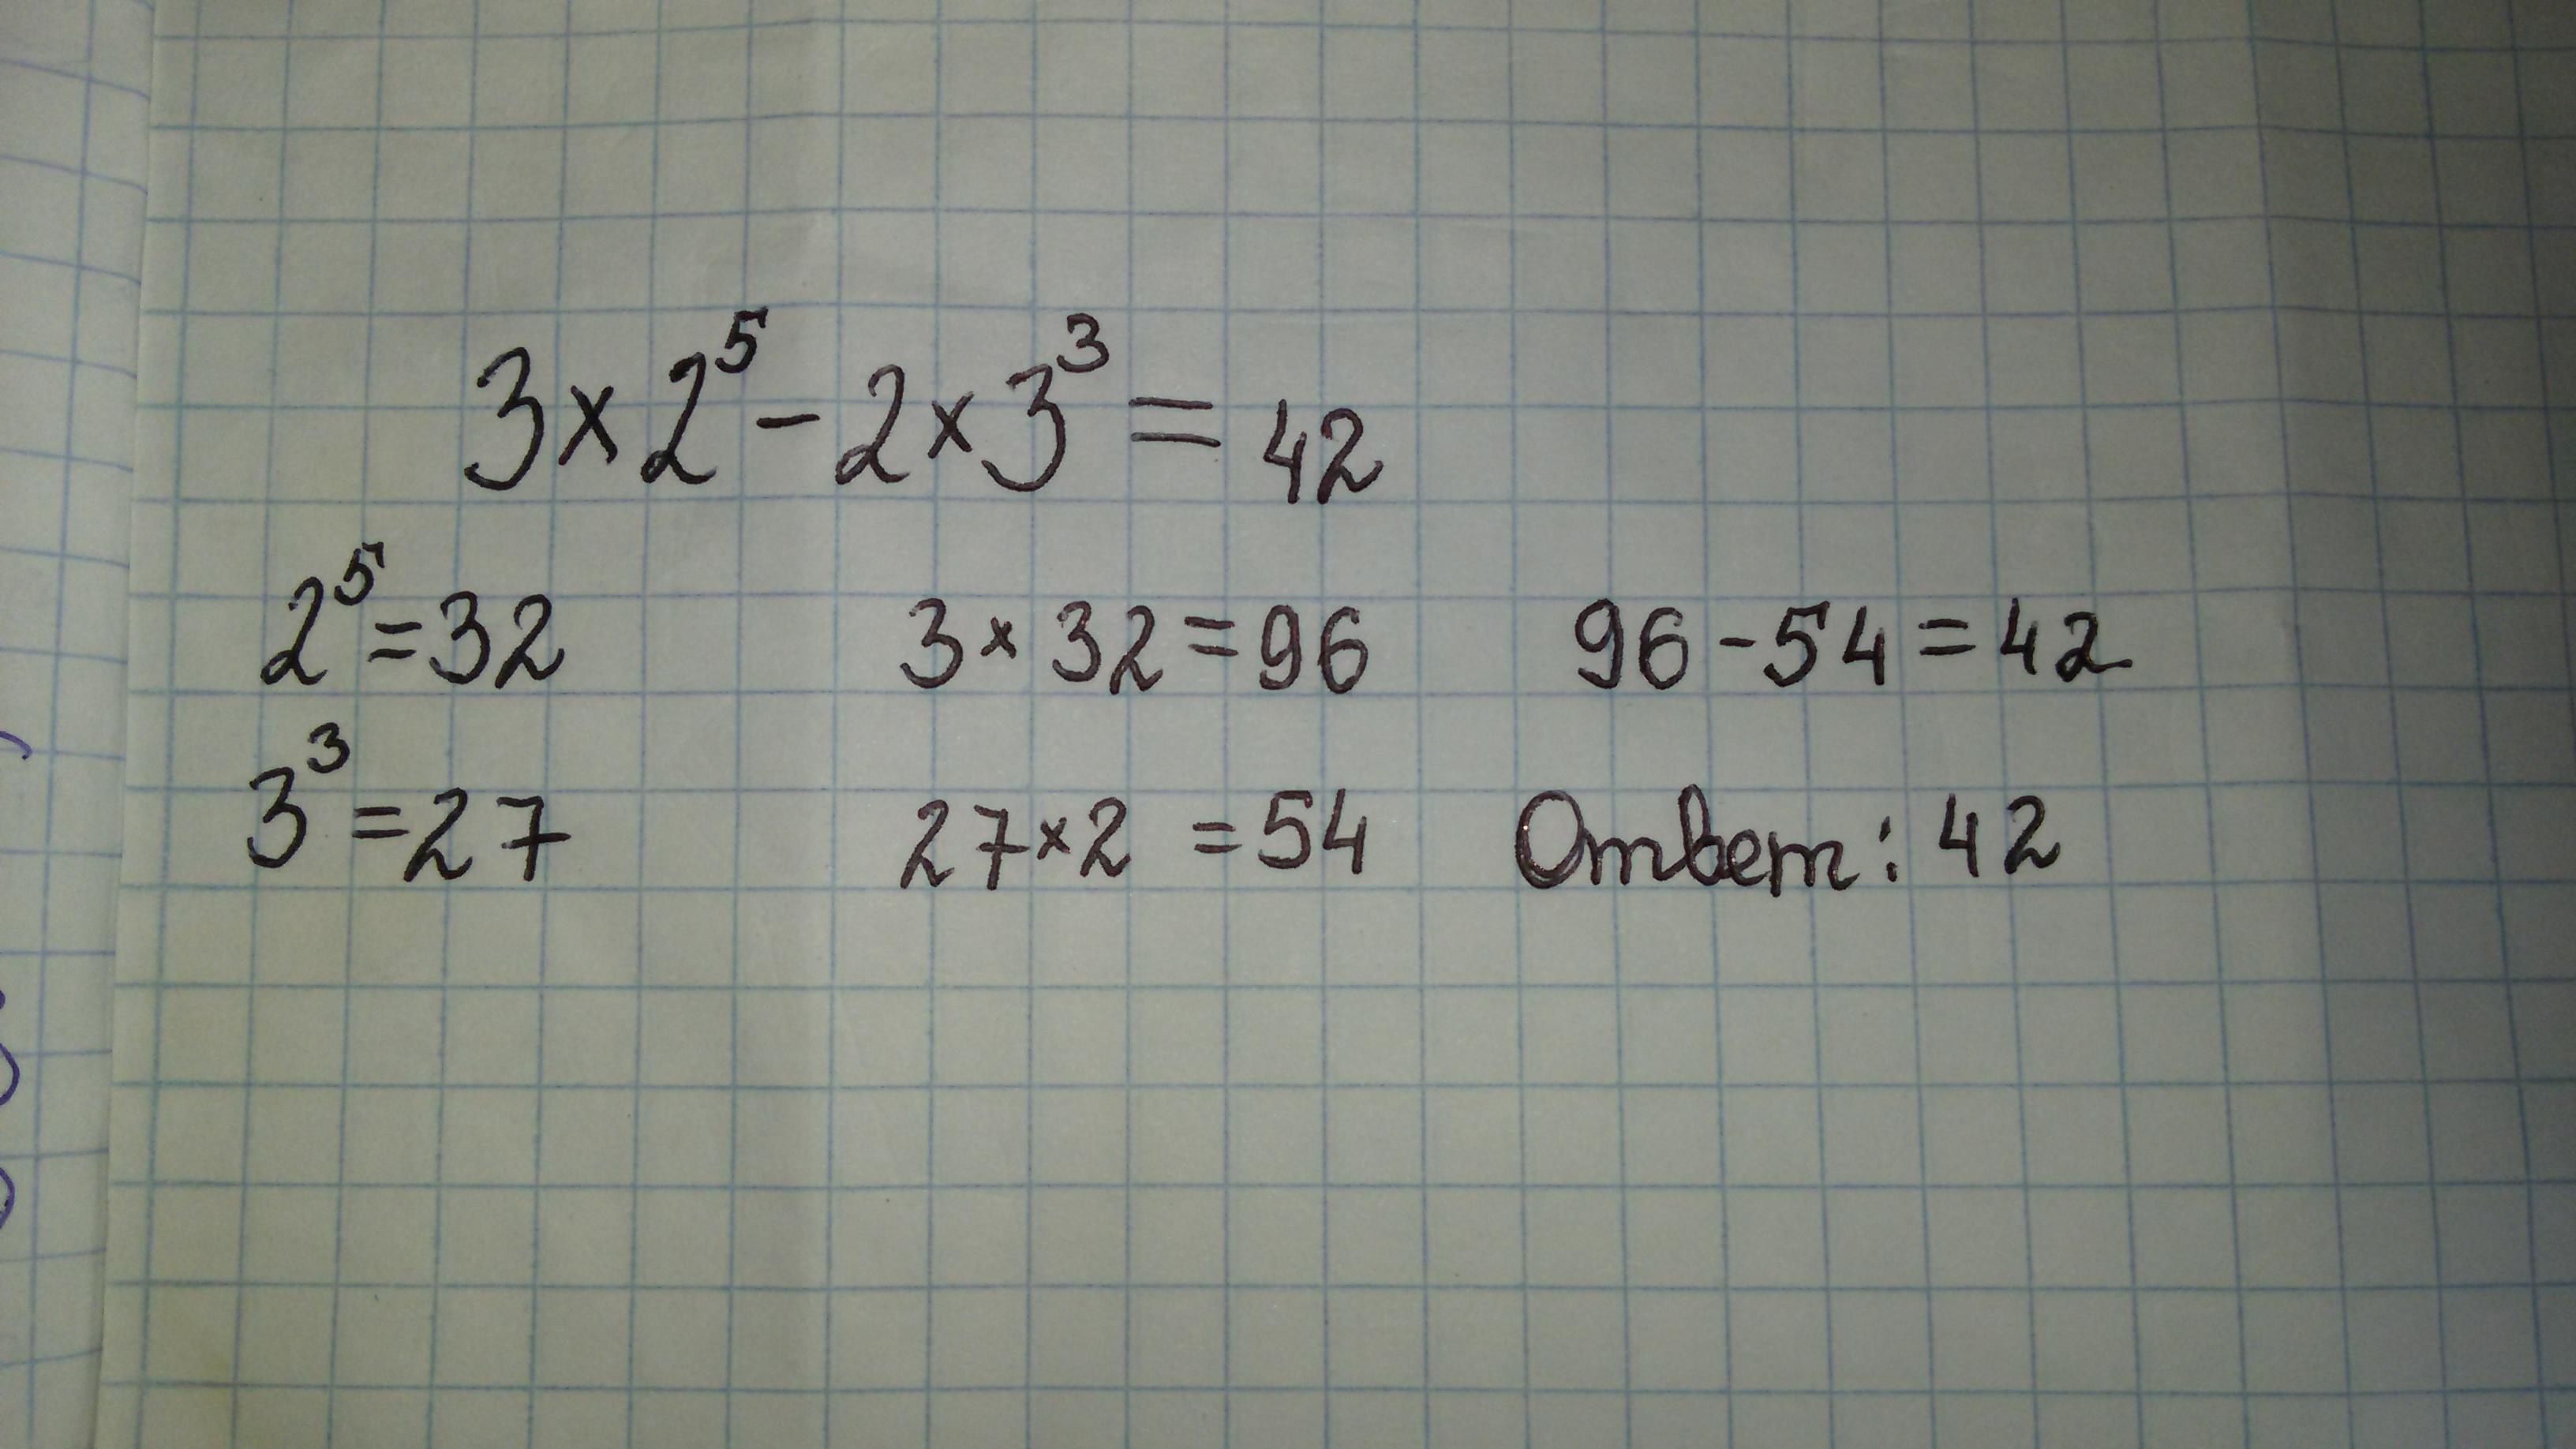 3×2⁵-2×3³=42
2⁵=32 3×32=96 96-54=42
3³=27 27×2=54 Ответ: 42